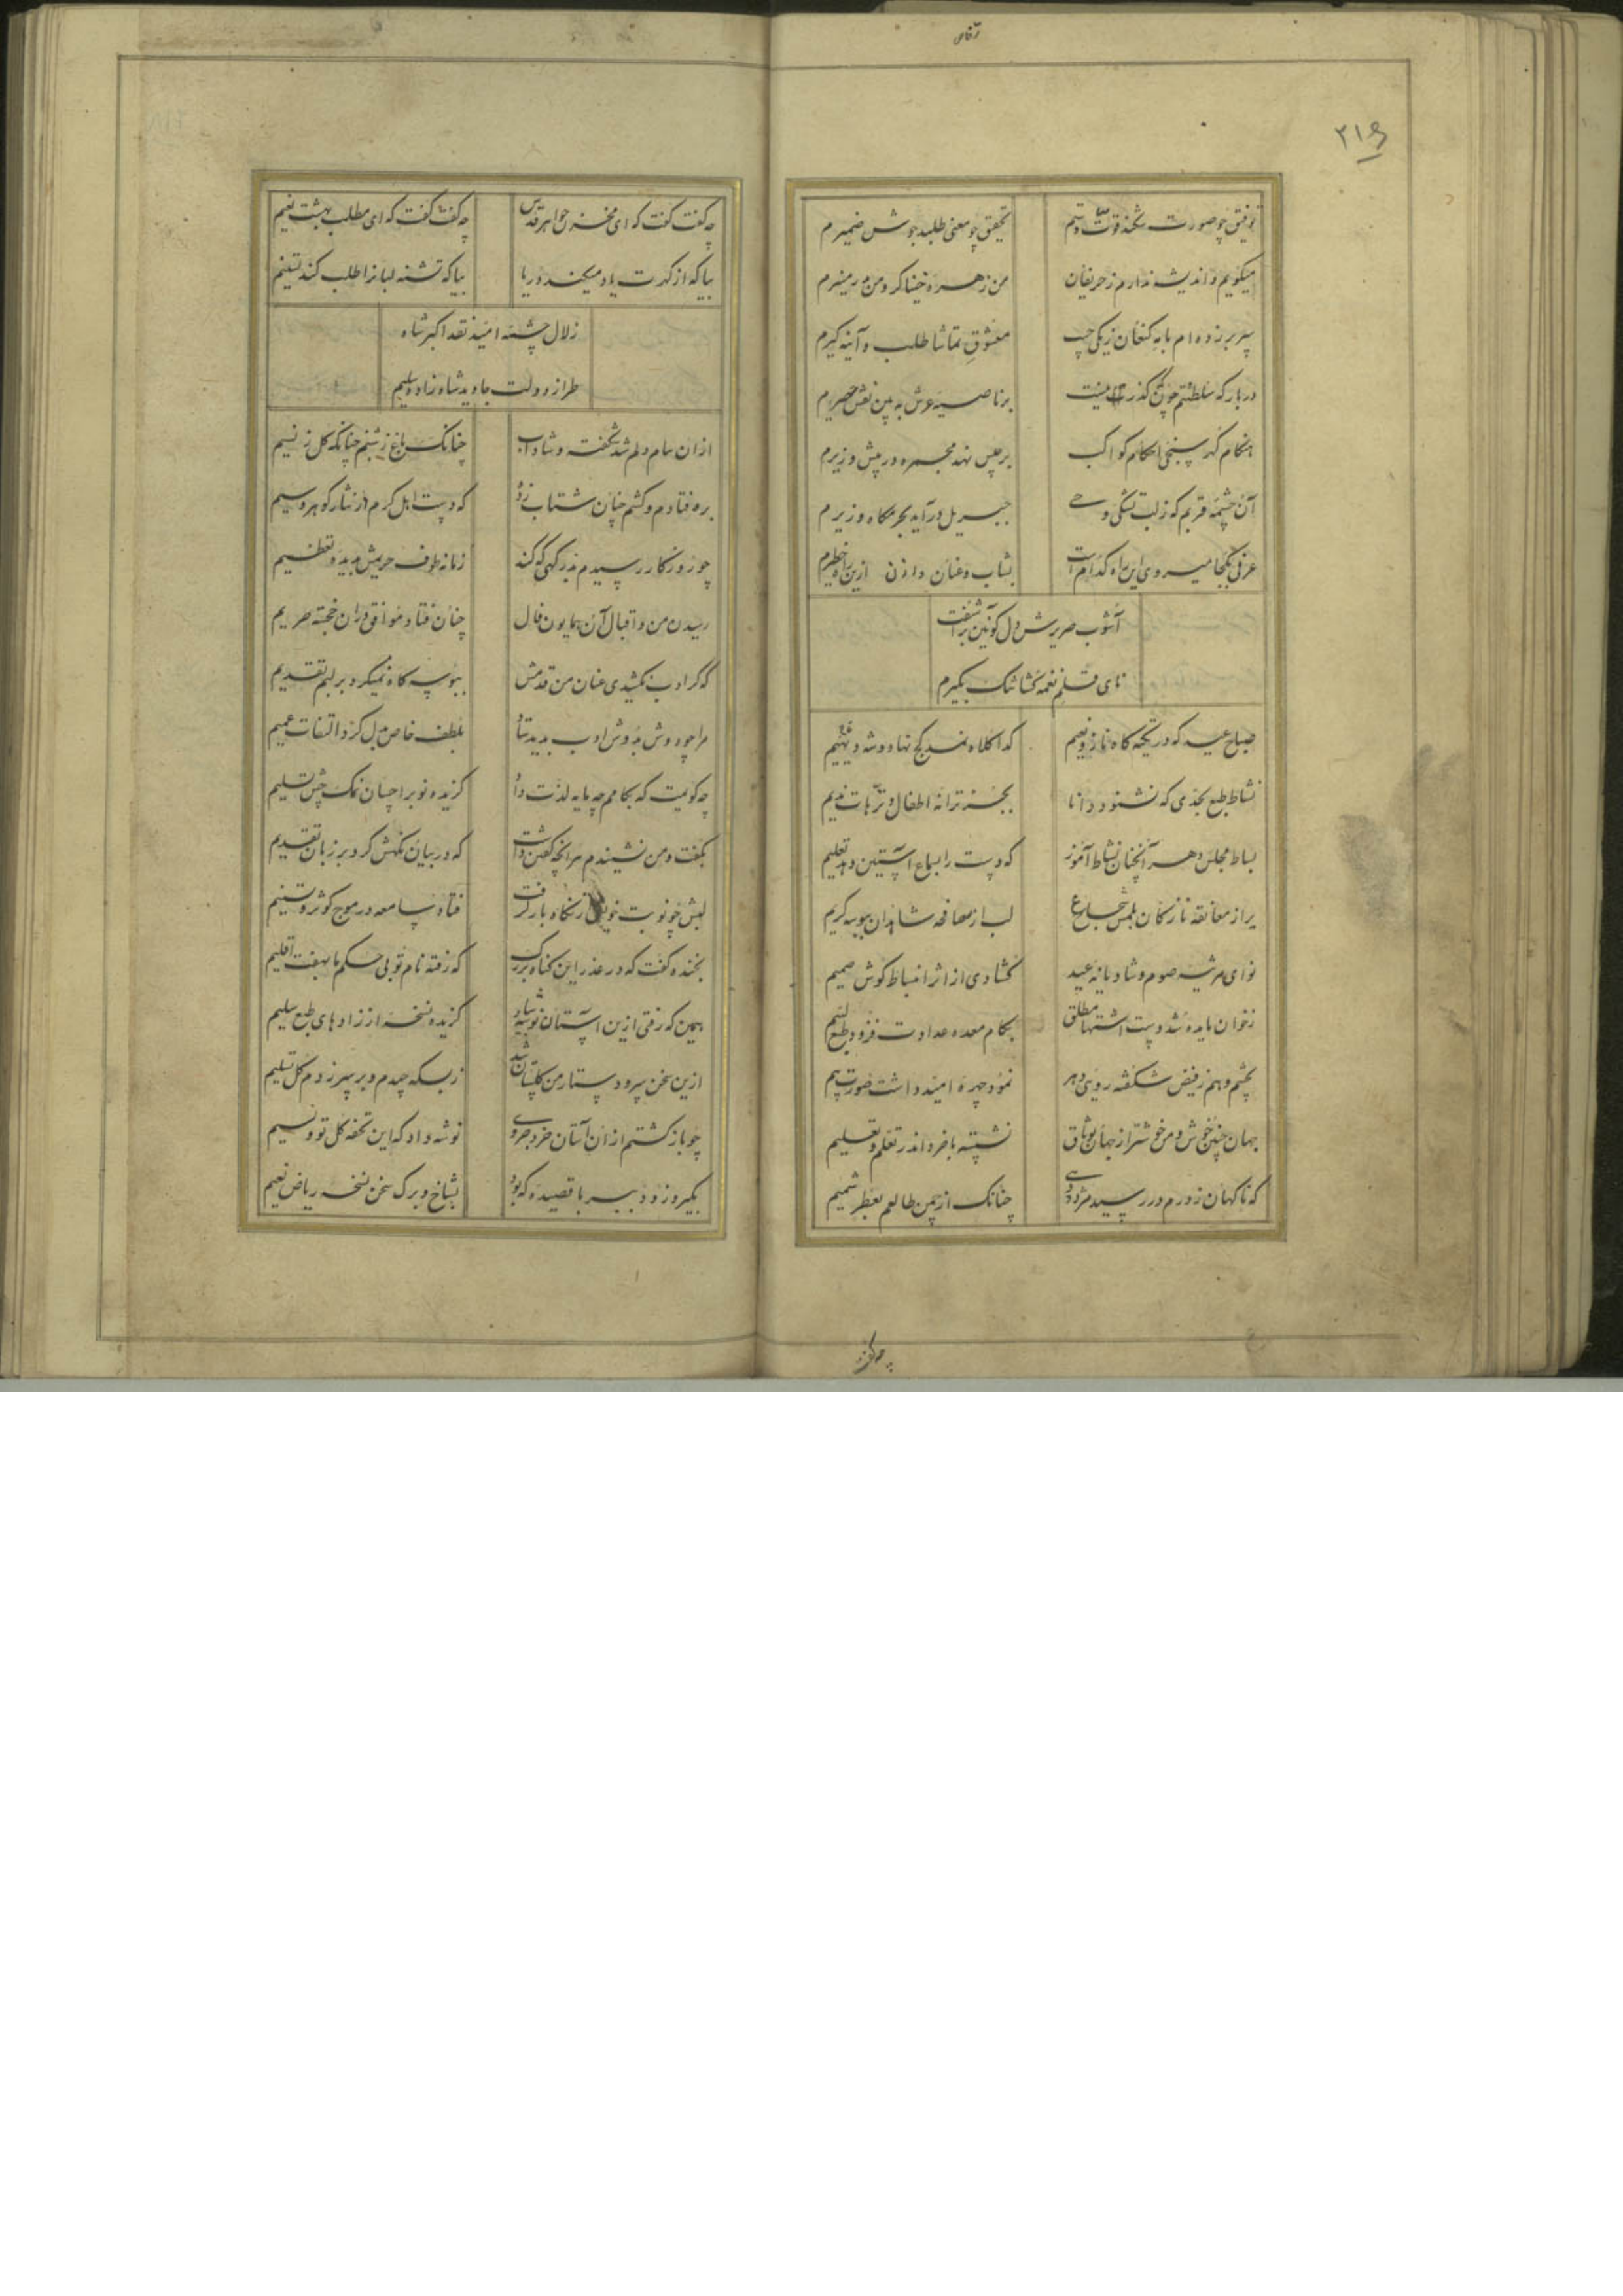 ۲۱۶
توفیق چو صورت شکند قوت دستم
تحقیق چو معنی طلبد جوش ضمیرم
میکویم و اندیشه ندارم ز حریفان
من زهره خنیاکر و من
معشوق تماشا طلب و آینه کیرم
در بارکه سلطنتم چون کذر
هنکام کهر سنجی احکام کواکب
برجیس نهد مجمره در پیش وزیرم
جبریل در آید
عرفی بکجا میروی این راه کدام است
بشتاب و عنان وازن ازین راه
آشوب صریرش دل کونین بر آشفت
نای قلم نغمه کشا تنک بکیرم
صباح عید که در تکیه کاه ناز و نعیم
کدا کلاه نمد کج نهاد و شه دیهیم
نشاط طبع بحدی که نشنود دانا
بجز ترانه اطفال و ترهات ندیم
بساط مجلس دهر آنچنان نشاط آموز
که دست را بسماع آستین دهد تعلیم
لب از مصافحه شاهدان ببوسه کریم
نوای مرثیه صوم و شادیانه عید
کشادی از اثر انبساط کوش صمیم
ز خوان مایده شد دست اشتها مطلق
بکام معده عداوت فزود طبع لئیم
بچشم وهم ز فیض شکفته روئی دهر
نمود چهره امید داشت صورت بیم
جهان چنین خوش و من خوشتر از جهان بوثاق
نشسته با خرد اندر تعلم و تعلیم
که ناکهان ز درم در رسید مژده دهی
چنانک از چمن طالعم بعطر شمیم
چه کفت کفت که ای مخزن جواهر قدس
چه کفت کفت که ای مطلب بهشت نعیم
بیا که از کهرت یاد میکند دریا
بیا که تشنه لبان را طلب کند تسنیم
زلال چشمه امید نقد اکبر شاه
طراز دولت جاوید شاه زاده سلیم
از ان پیام دلم شد شکفته و شاداب
چنانک باغ ز شبنم چنانکه کل ز نسیم
بره فتادم و کشتم چنان شتاب زده
که دست اهل کرم در نثار کوهر و سیم
چو روزکار رسیدم بدرکهی که کند
زمانه طوف حریمش بدیده تعظیم
رسیدن من و اقبال آن همایون فال
چنان فتاد موافق در ان خجسته حریم
که کر ادب نکشیدی عنان من قدمش
ببوسه کاه نمیکرد بر لبم تقدیم
مرا چو دوش بدوش ادب بدید ستاد
بلطف خاص بدل کرد التفات عمیم
چه کویمت که بکامم چه مایه لذت داد
کزیده نوبر احسان نمک چش تسلیم
بکفت و من نشنیدم هر انچه کفتن داشت
که در بیان نکهش کرد بر زبان تقدیم
لبش چو نوبت خویش از نکاه باز کرفت
فتاد سامعه در موج کوثر و تسنیم
بخنده کفت که در عذر این کناه بزرک
که رفته نام تو بی حکم ما بهفت اقلیم
همین که رفتی ازین آستان نوشته بیار
کزیده نسخه از زادهای طبع سلیم
ازین سخن سر و دستار من کلستان شد
ز بسکه چیدم و بر سر زدم کل تسلیم
چو باز کشتم از ان آستان خرد
نوشه داد که این تحفه کل تو و نسیم
بکیر و زود ببر با قصیده که بود
بشاخ و برک سخن نسخه ریاض نعیم